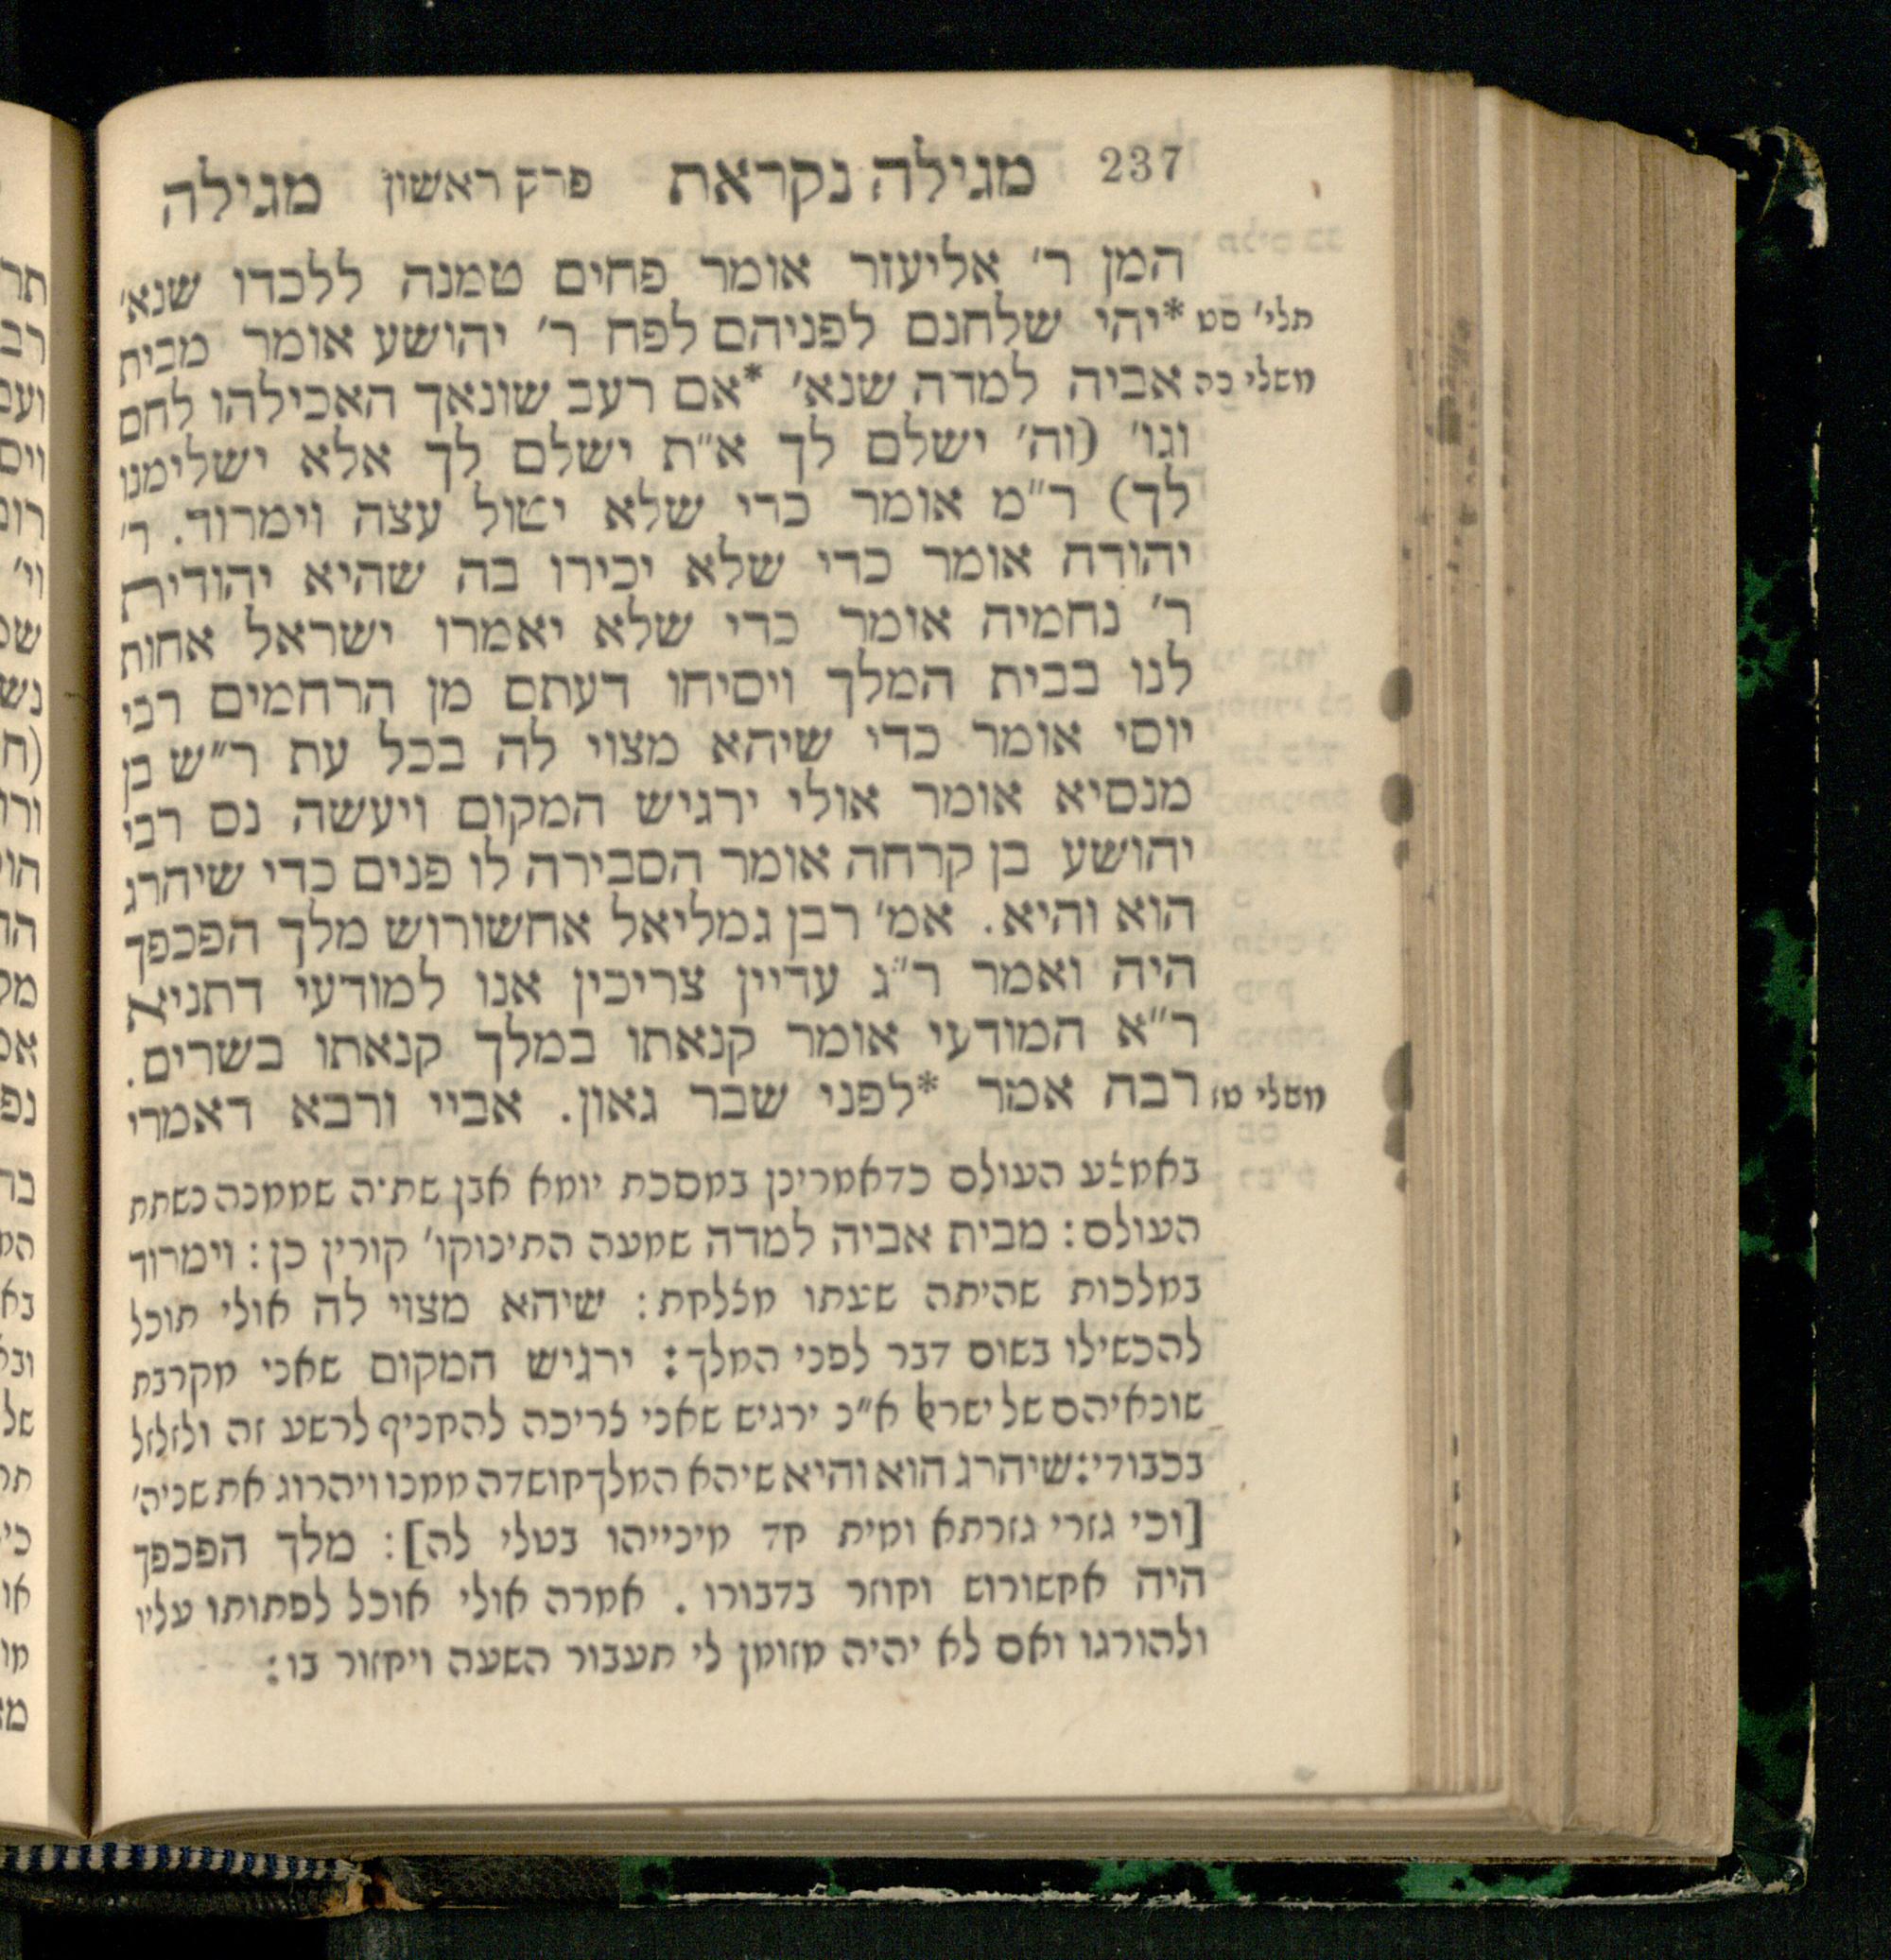 237 מגילה נקראת פרק ראשון מגילה
המן ר׳ אליעזר אומר פחים טמנה ללכדו שנא׳
תלי׳ סט *יהי שלחנם לפניהם לפח ר׳ יהושע אומר מבית
משלי כה אביה למדה שנא׳ *אם רעב שונאך האכילהו לחם
וגו׳ (וה׳ ישלם לך א״ת ישלם לך אלא ישלימנו
לך) ר״מ אומר כדי שלא יטול עצה וימרוד. ר׳
יהודה אומר כדי שלא יכירו בה שהיא יהודית
ר׳ נחמיה אומר כדי שלא יאמרו ישראל אחות
לנו בבית המלך ויסיחו דעתם מן הרחמים רבי
יוסי אומר כדי שיהא מצוי לה בכל עת ר״ש בן
מנסיא אומר אולי ירגיש המקום ויעשה נס רבי
יהושע בן קרחה אומר הסבירה לו פנים כדי שיהרג
הוא והיא. אמ׳ רבן גמליאל אחשורוש מלך הפכפך
היה ואמר ר״ג עדיין צריכין אנו למודעי דתניא
ר״א המודעי אומר קנאתו במלך קנאתו בשרים.
משלי טז רבה אמר *לפני שבר גאון. אביי ורבא דאמרי
באמצע העולם כדאמרינן במסכת יומא אבן שת׳ה שממנה נשתת
העולם: מבית אביה למדה שמעה התינוקו׳ קורין כן: וימרוד
במלכות שהיתה שעתו מצלחת: שיהא מצוי לה אולי תוכל
להכשילו בשום דבר לפני המלך: ירגיש המקום שאני מקרבת
שונאיהם של ישראל א״נ ירגיש שאני צריכה להחניף לרשע זה ולזלזל
בכבודי: שיהרג הוא והיא שיהא המלך חושדה ממנו ויהרוג את שניה׳
[וכי גזרי גזרתא ומית חד מינייהו בטלי לה]: מלך הפכפך
היה אחשורוש וחוזר בדבורו. אמרה אולי אוכל לפתותו עליו
ולהורגו ואם לא יהיה מזומן לי תעבור השעה ויחזור בו: